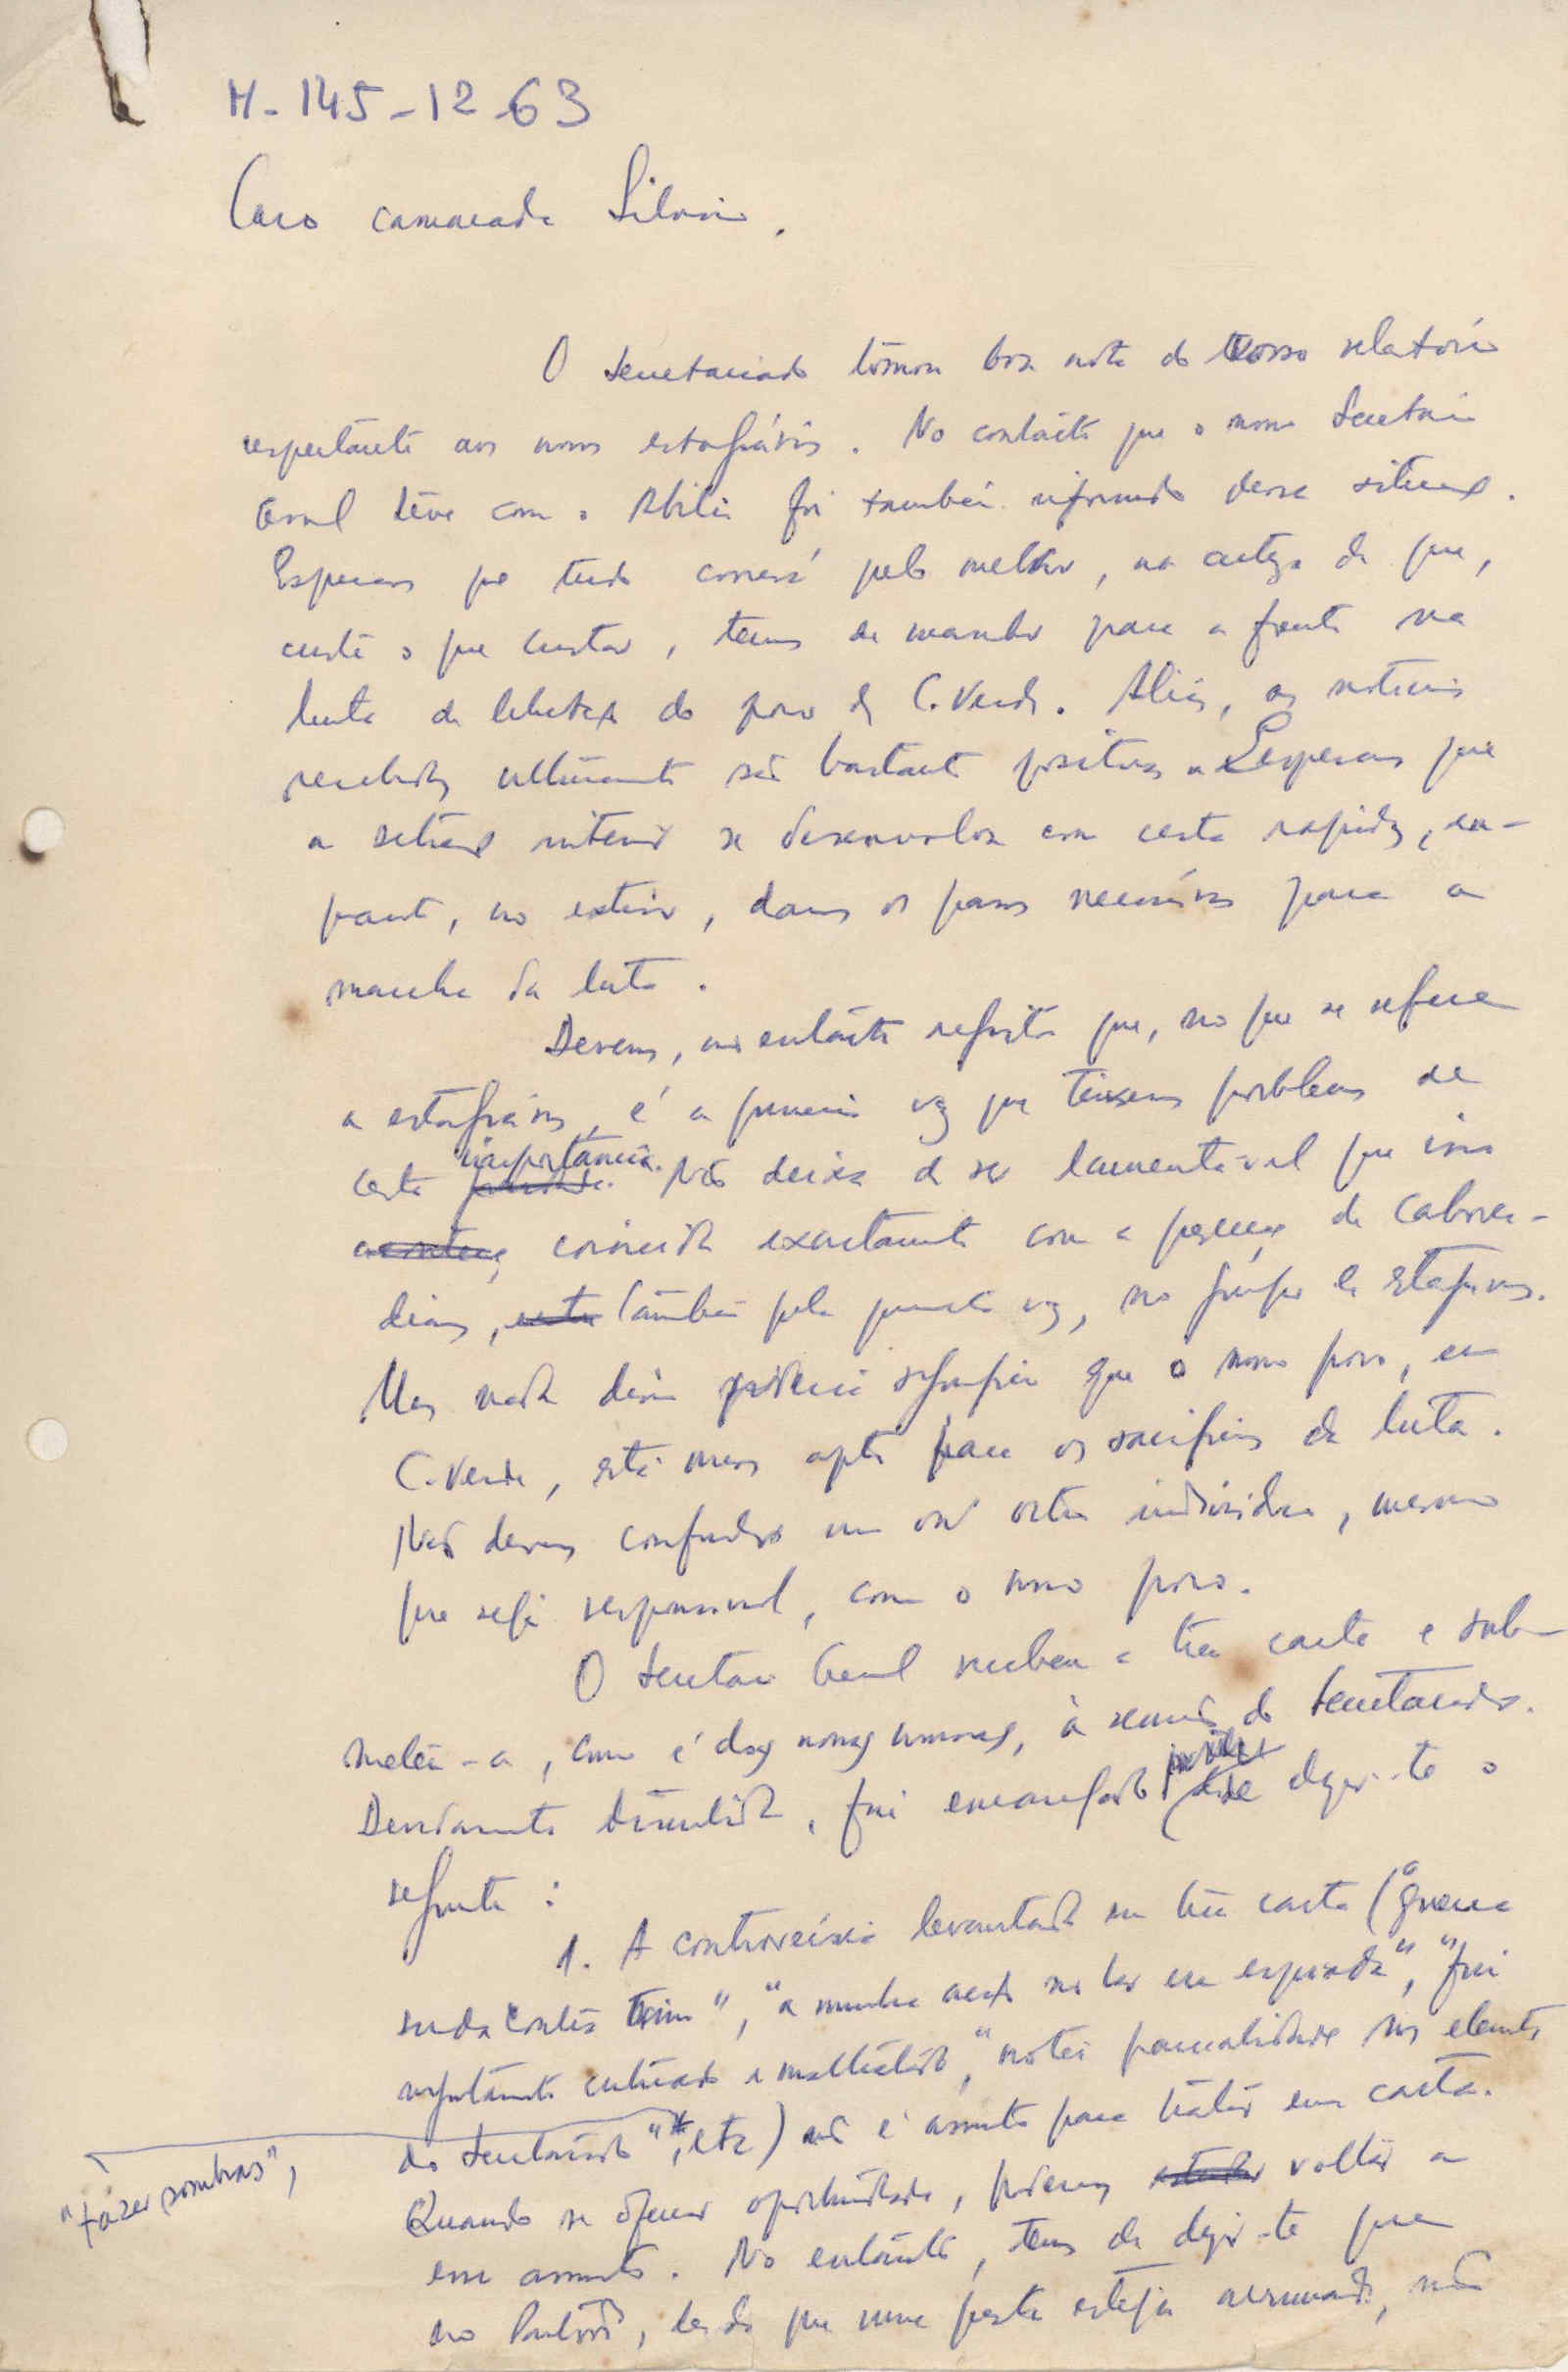 H-145-12-63
Caro camarada Silvino.
O Secretariado tomou boa nota do vosso relatório
respeitante aos novos estagiários. No contacto que o nosso Secretário
Geral teve com o Abílio foi também informado dessa situação.
Esperamos que tudo correrá pelo melhor, na certeza de que,
custe o que custar, temos de marchar para a frente na
luta de libertação do povo de C. Verde. Aliás, as notícias
recebidas ultimamente são bastante positivas e esperamos que
a situação interior se desenvolva com certa rapidez, en-
quanto, no exterior, damos os passos necessários para a
marcha da luta.
Devemos, no entanto registar que, no que se refere
a estagiários, é a primeira vez que tivemos problemas de
certa importância. Não deixa de ser lamentável que isso
coincida exactamente com a presença de cabover-
dianos, também pela primeira vez, no grupo de estagiários.
Mas nada disso poderia significar que o nosso povo, em
C. Verde, está menos apto para os sacrifícios da luta.
Não devemos confundir um ou outro indivíduo, mesmo
que seja responsável, com o nosso povo.
O Secretário Geral recebeu a tua carta e sub-
meteu-a, como é das nossas normas, à reunião do Secretariado.
Devidamente discutida, fui encarregado de dizer-te o
seguinte:
1. A controvérsia levantada na tua carta ("guerra
surda contra mim", "a minha acção não ser esperada", "fui
injustamente criticado e maltratado", "notei parcialidade nos elementos
do Secretariado", etc) não é assunto para tratar em carta.
"fazer sombras",
Quando se oferecer oportunidade, podemos voltar a
esse assunto. No entanto, temos de dizer-te que
no Partido, desde que uma porta esteja arrumada, não